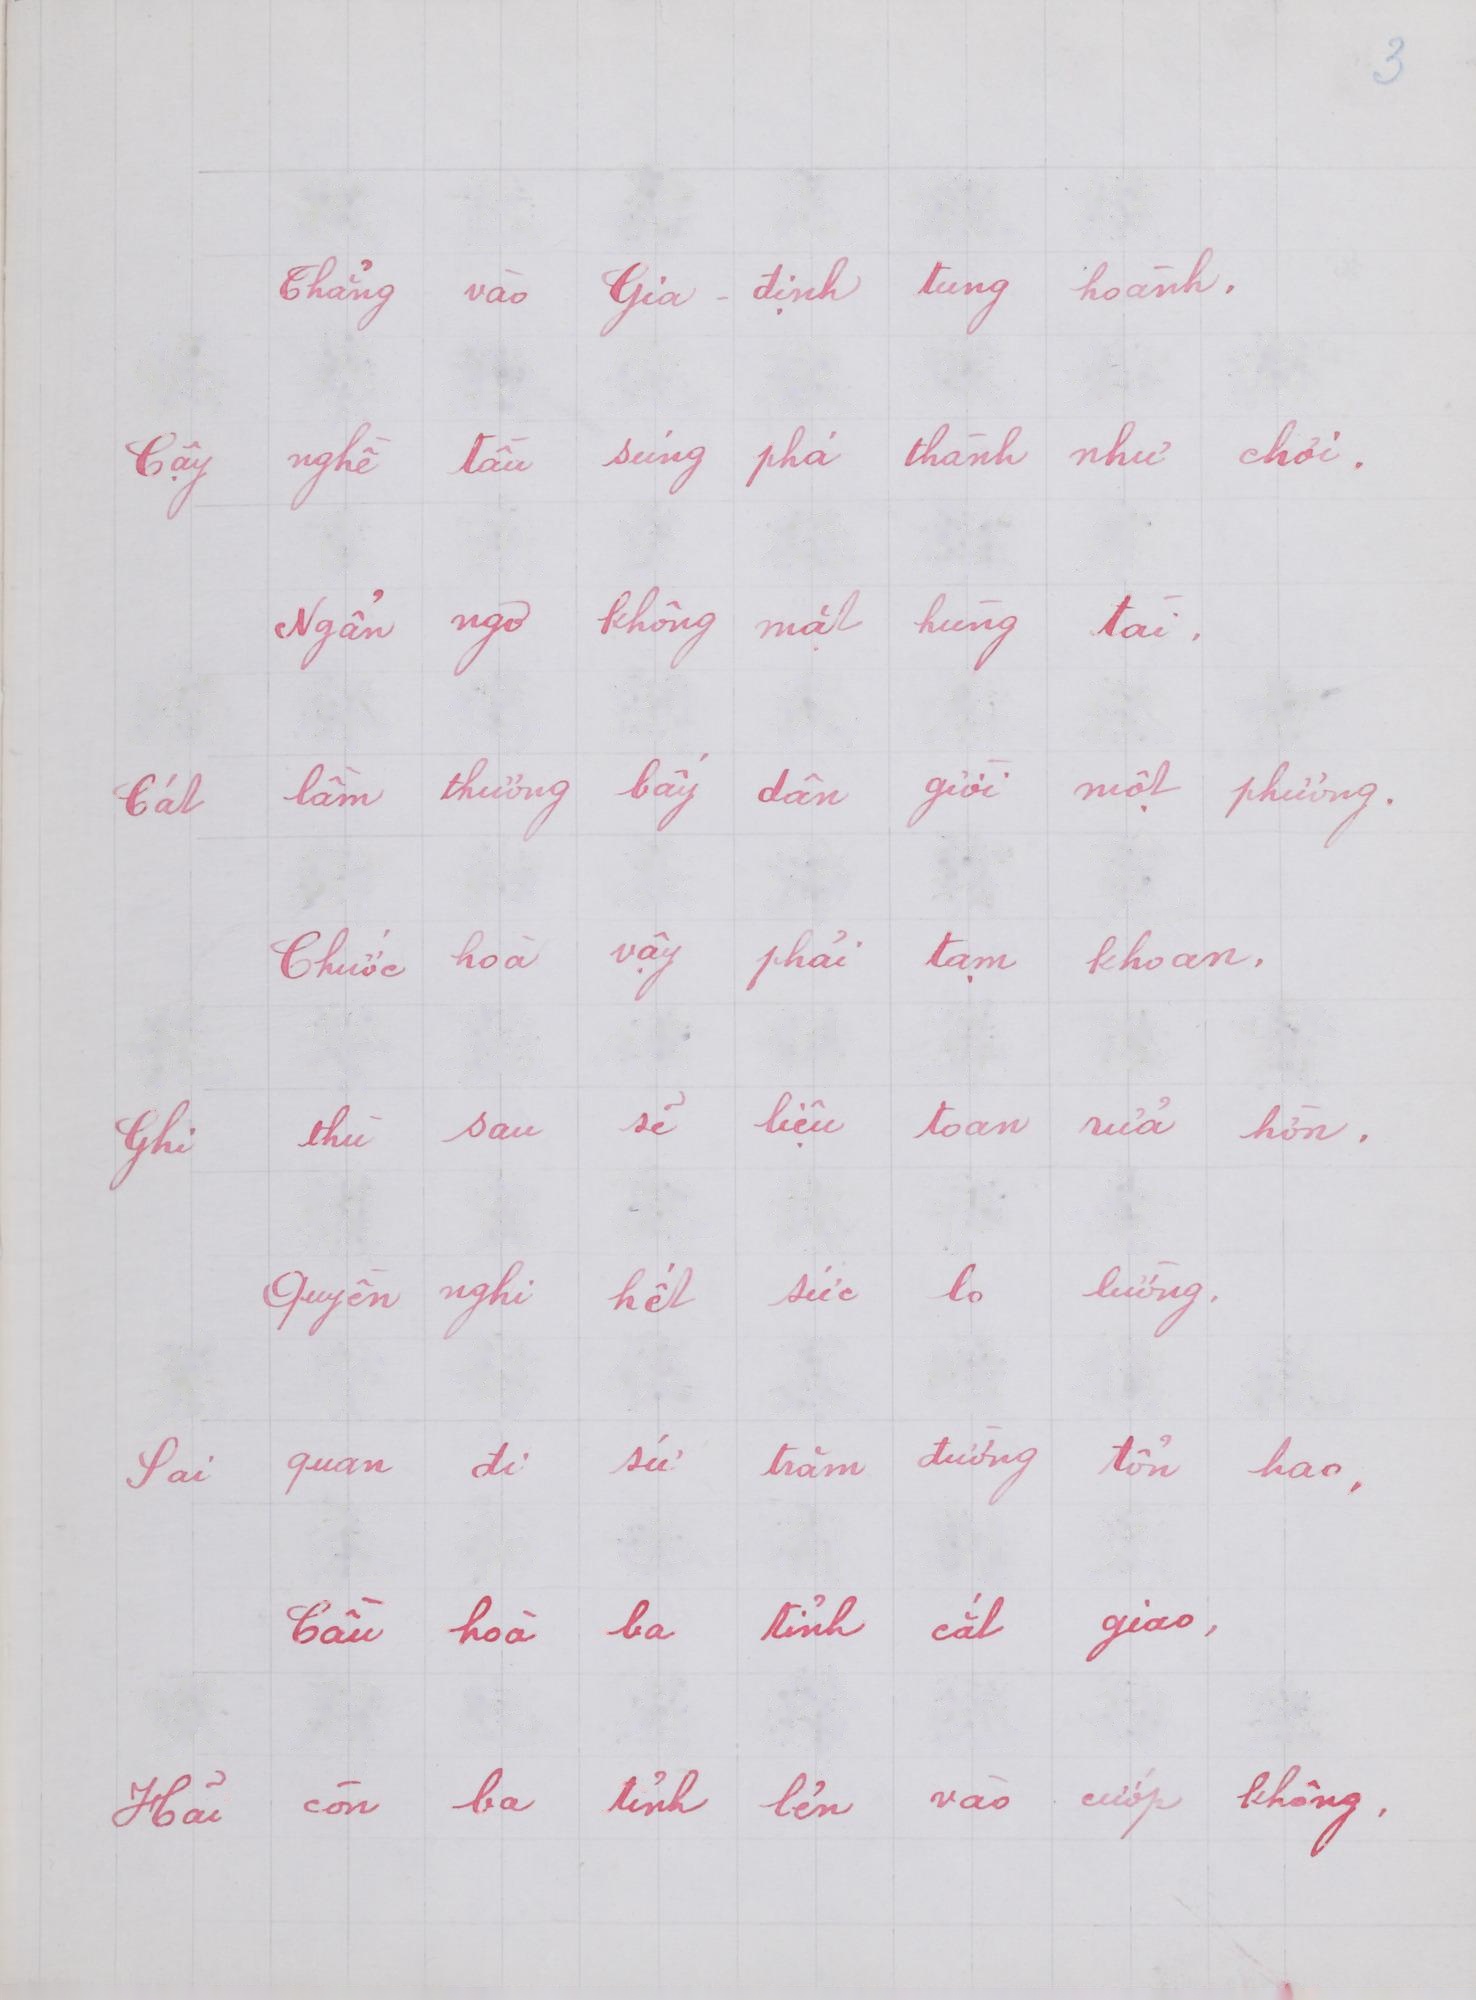 3
Thẳng vào Gia-định tung hoành.
Cậy nghề tầu súng phá thành như chơi.
Ngẩn ngơ không mặt hùng tài.
Cát lầm thương bấy dân giời một phương.
Chước hoà vậy phải tạm khoan.
Ghi thù sau sẽ liệu toan rửa hờn.
Quyền nghi hết sức lo lường.
Sai quan đi sứ trăm đường tổn hao,
Cầu hoà ba tỉnh cắt giao,
Hãi còn ba tỉnh lẻn vào cướp không.